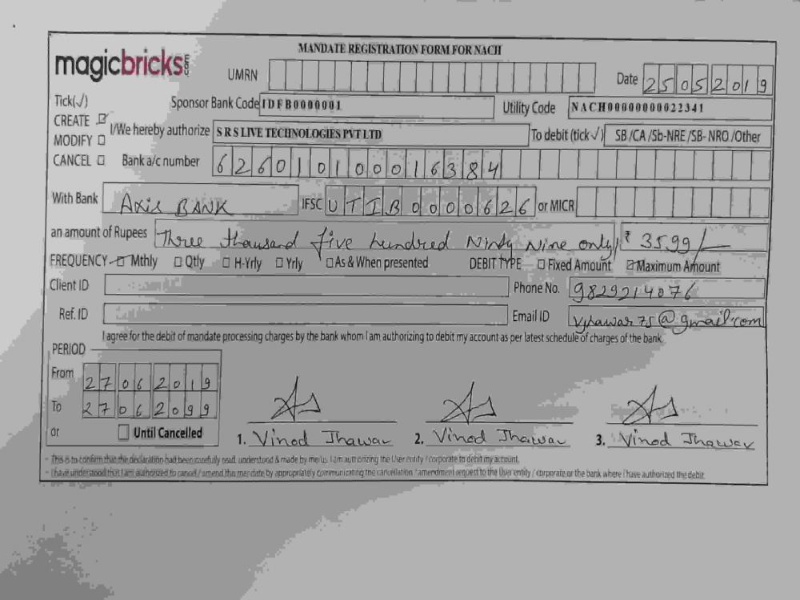 magicbricks.com
MANDATE REGISTRATION FORM FOR NACH
UMRN
Date 25052019
Tick(√)
Sponsor Bank Code IDFB0000001 Utility Code NACH00000000022341
CREATE ☑
MODIFY ☐
CANCEL ☐
I/We hereby authorize SRS LIVE TECHNOLOGIES PVT LTD To debit (tick √) SB /CA /Sb-NRE /SB- NRO /Other
Bank a/c number 626010100016384
With Bank AXIS BANK IFSC UTIB0000626 or MICR
an amount of Rupees Three thousand five hundred Ninty Nine only ₹ 3599/-
FREQUENCY ☐ Mthly ☐ Qtly ☐ H-Yrly ☐ Yrly ☐ As & When presented DEBIT TYPE ☐ Fixed Amount ☑ Maximum Amount
Client ID Phone No. 9829214076
Ref. ID Email ID vjhawar75@gmail.com
I agree for the debit of mandate processing charges by the bank whom I am authorizing to debit my account as per latest schedule of charges of the bank
PERIOD
From 27062019
To 27062099
or ☐ Until Cancelled
1. Vinod Jhawar 2. Vinod Jhawar 3. Vinod Jhawar
- This is to confirm that the declaration had been carefully read, understood & made by me/us. I am authorizing the User entity / corporate to debit my account.
- I have understood that I am authorized to cancel / amend the mandate by appropriately communicating the cancellation / amendment request to the User entity / corporate or the bank where I have authorized the debit.